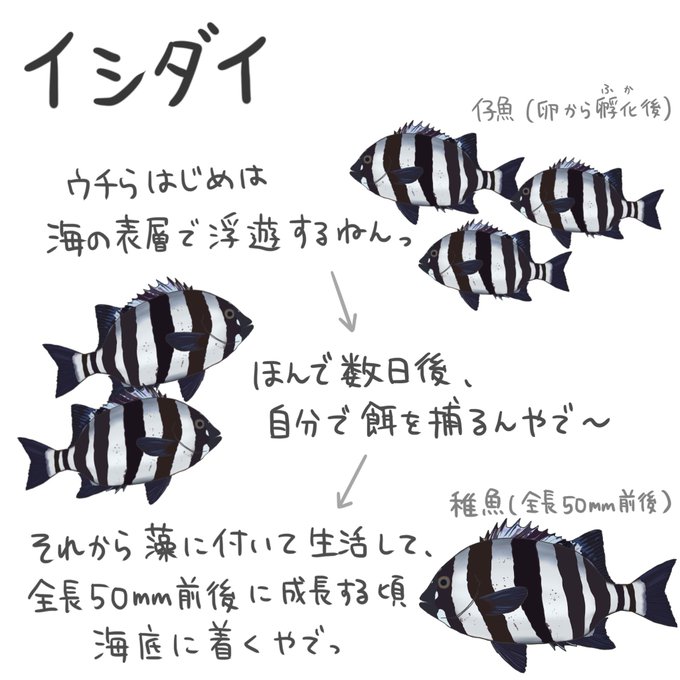 イシダイ
仔魚(卵から孵化後)
ふか
ウチらはじめは
海の表層で浮遊するねんっ
ほんで数日後、
自分で餌を捕るんやで〜
稚魚(全長50mm前後)
それから藻に付いて生活して、
全長50mm前後に成長する頃
海底に着くやでっ